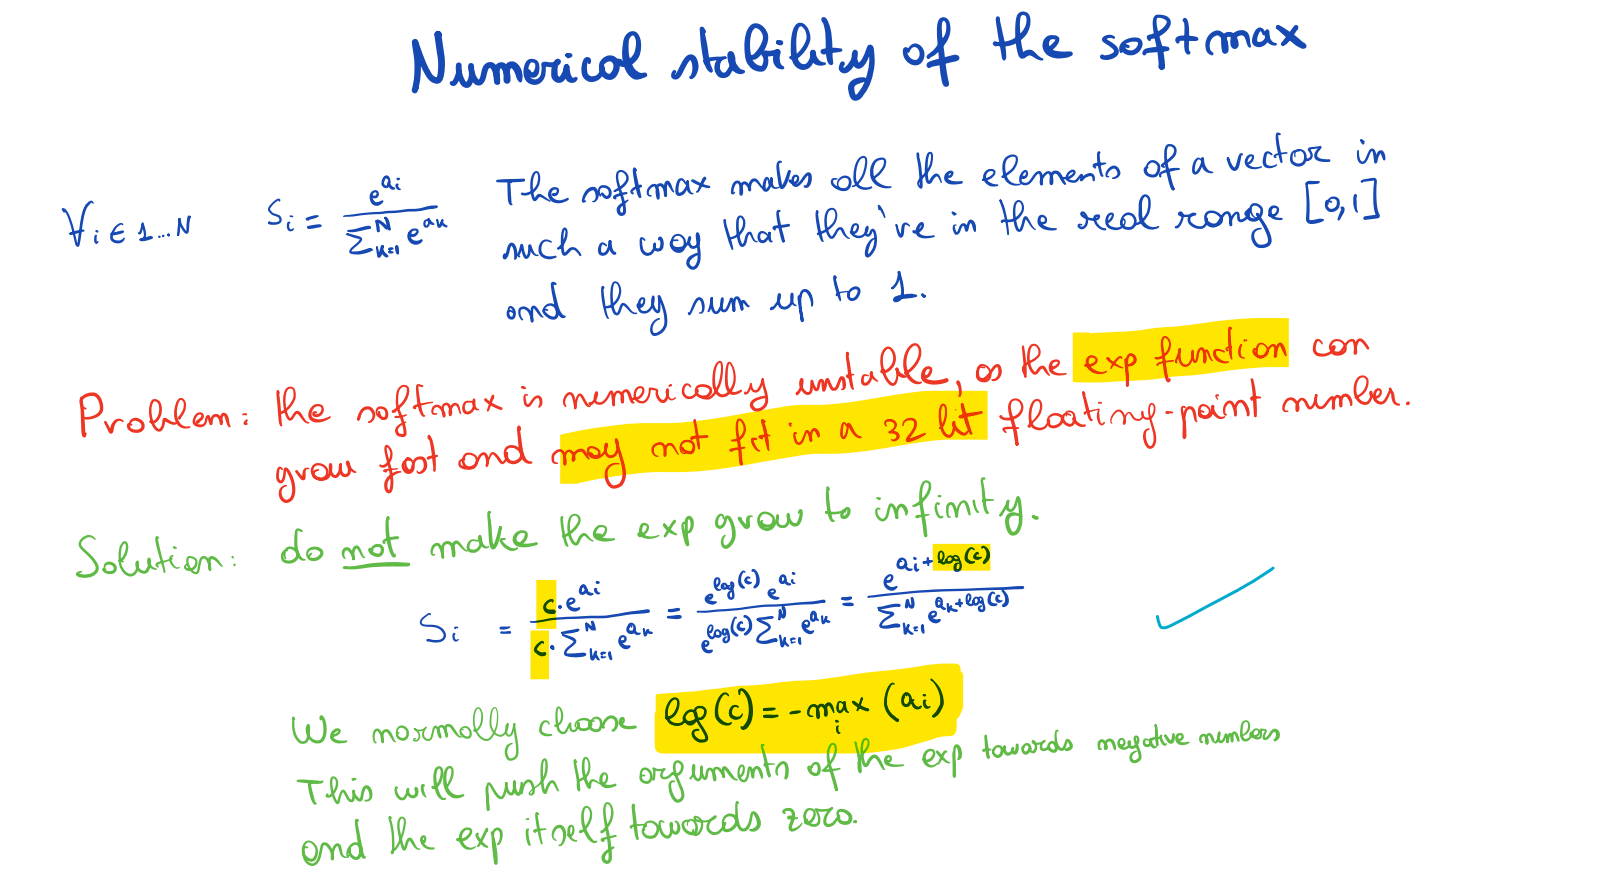 Numerical stability of the softmax
∀i ∈ 1...N   Sᵢ = e^{aᵢ} / ∑_{k=1}^{N} e^{aₖ}
The softmax makes all the elements of a vector in
such a way that they've in the real range [0,1]
and they sum up to 1.
Problem: the softmax is numerically unstable, as the exp function can
grow fast and may not fit in a 32 bit floating-point number.
Solution: do not make the exp grow to infinity.
Sᵢ = c·e^{aᵢ} / c·∑_{k=1}^{N} e^{aₖ} = e^{log(c)} e^{aᵢ} / e^{log(c)} ∑_{k=1}^{N} e^{aₖ} = e^{aᵢ+log(c)} / ∑_{k=1}^{N} e^{aₖ+log(c)}
We normally choose log(c) = -max_i (aᵢ)
This will push the arguments of the exp towards negative numbers
and the exp itself towards zero.